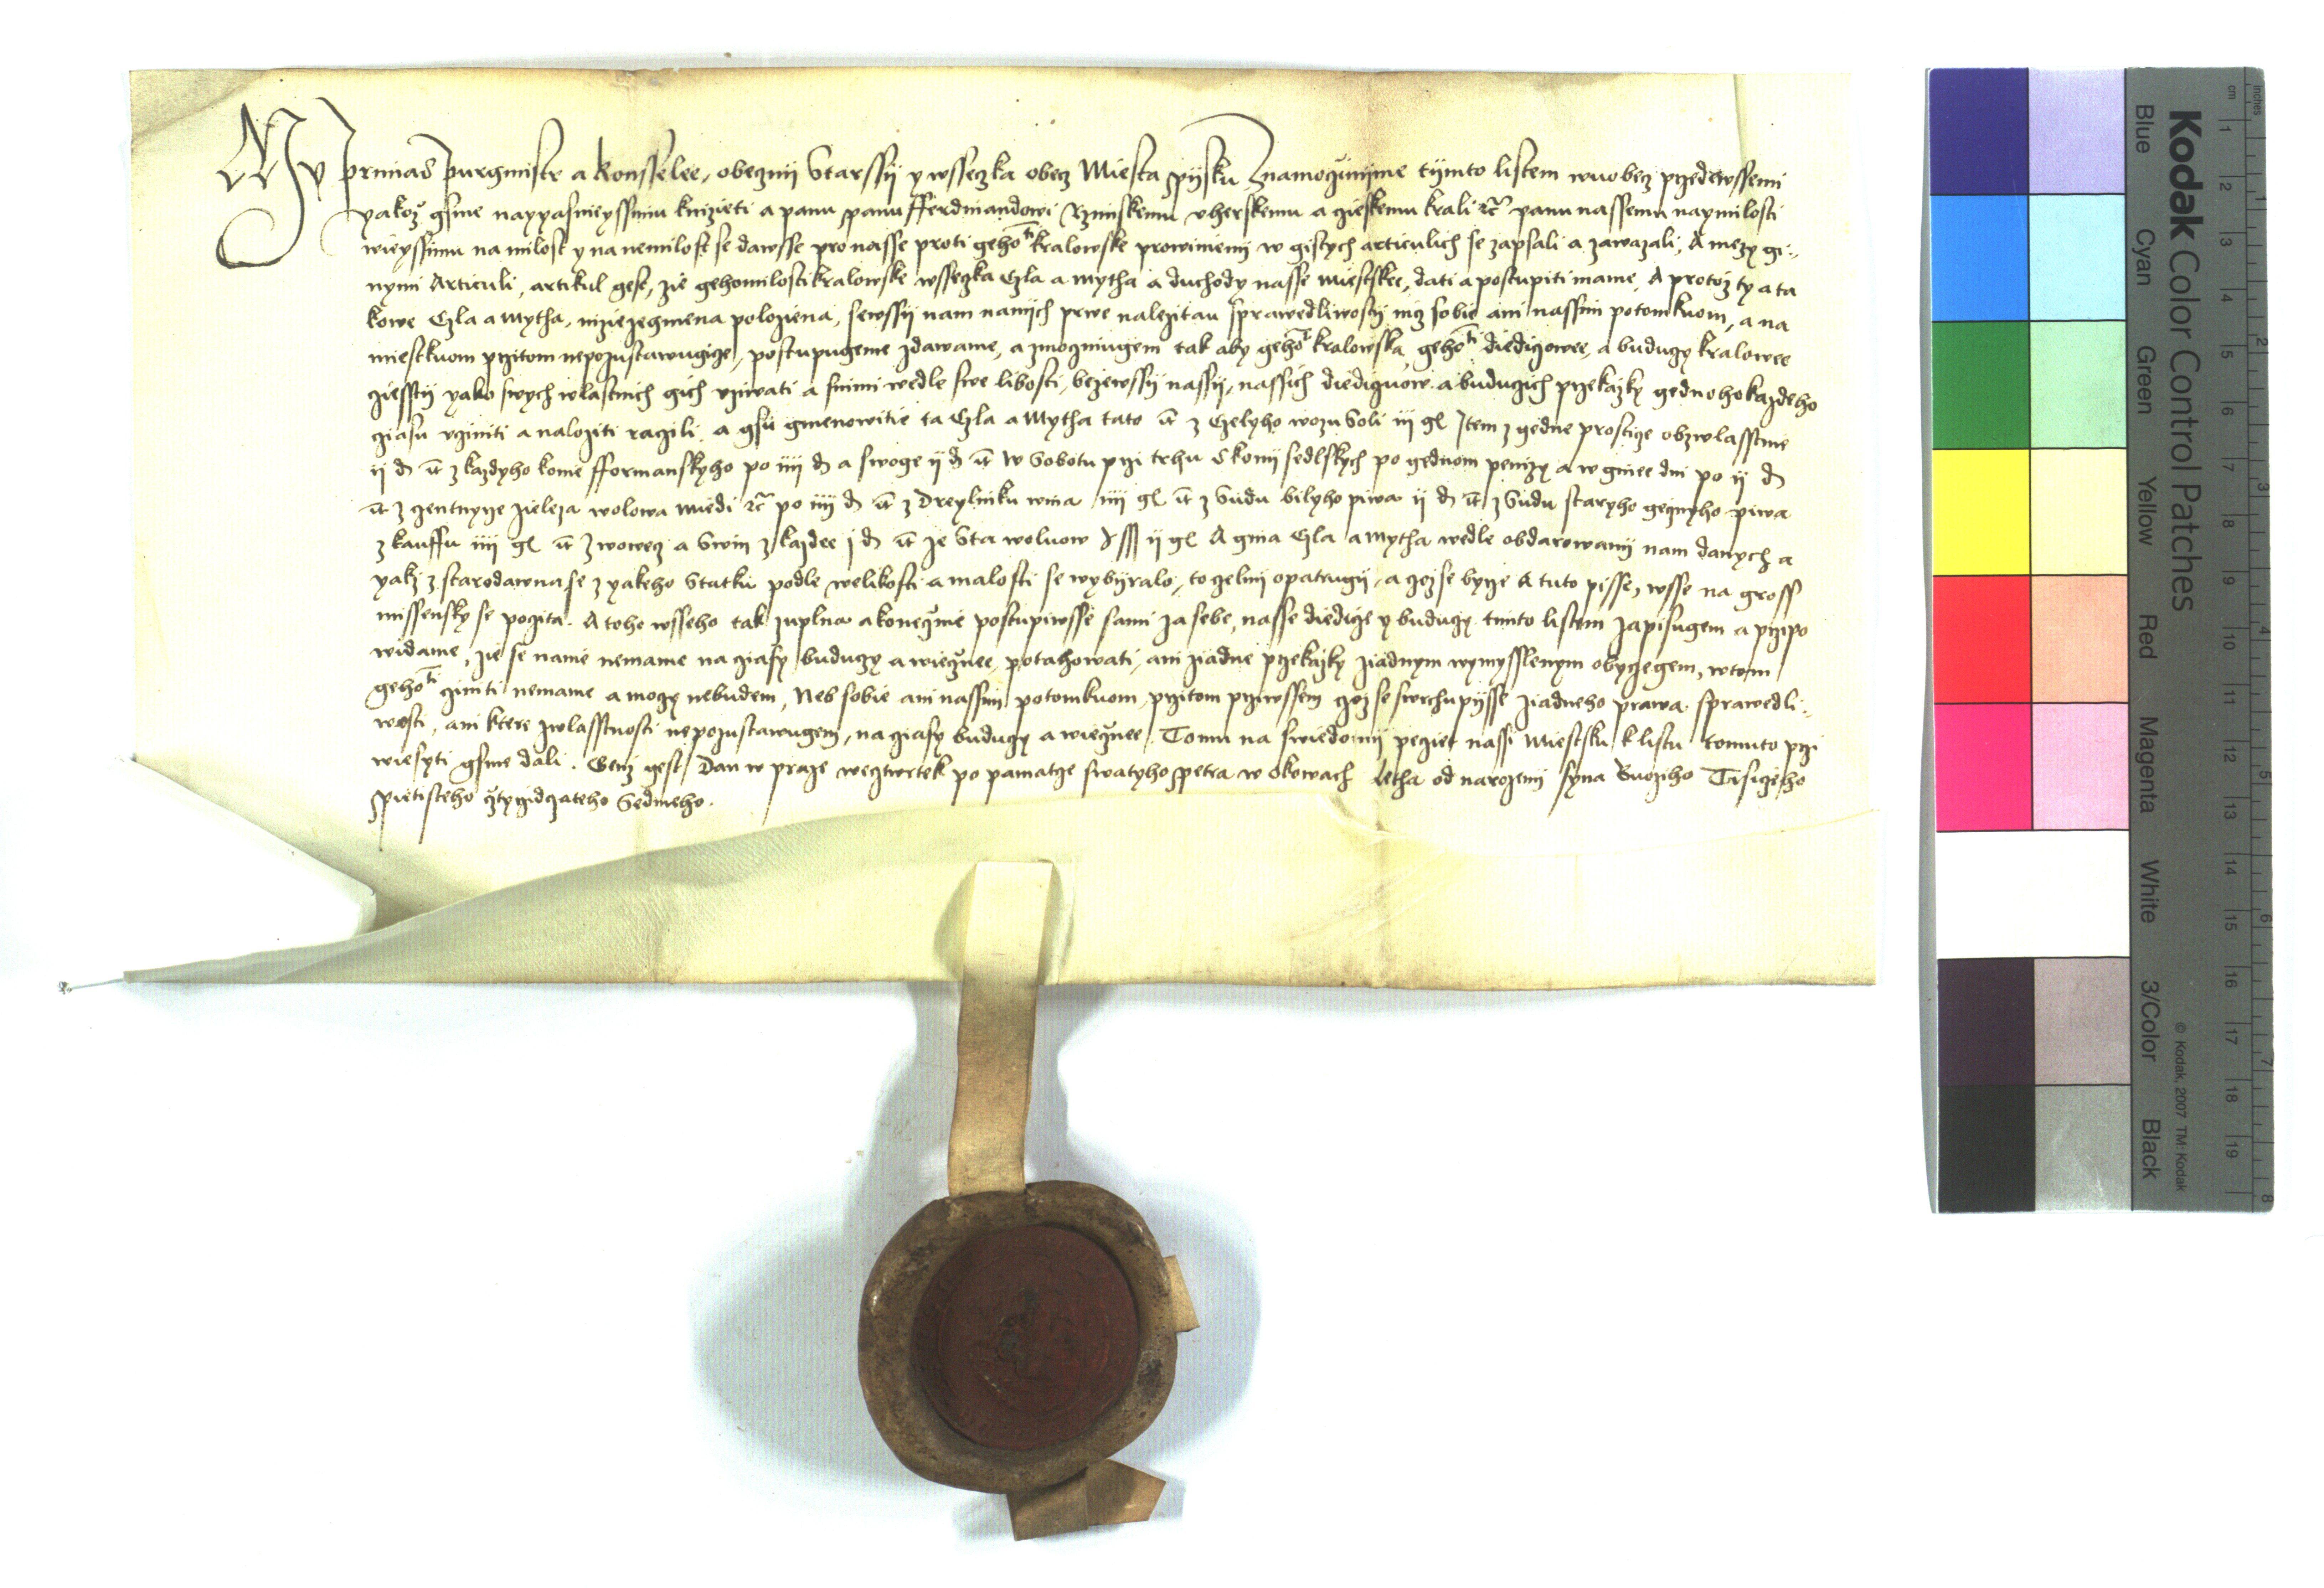 My primas purgmistr a konsselee, obeczny Starssij y wsseczka obecz Miesta pijsku Znamo cziniime tijmto listem wuobecz przedewssemi
yakoz gsme nayyasnieyssimu knizieti a panu panu fferdinandowi Rzimskemu vherskemu a czieskemu krali etc panu nassemu naymilosti
wieyssimu na milost y na nemilost se dawsse pro nasse proti geho mti kralowske prowinieni w gistych articulich se zapsali a zawazali, A mezy gi-
nymi Articuli, artikul gest, zie geho milosti kralowske wsseczka Czla a mytha a duchody nasse miestskee, dati a postupiti mame, A protoz ty a ta
kowe Czla a Mytha, nizie zegmena polozienа, sewssij nam na nijch prwe nalezitau sprawedlivostij nicz sobie ani nassim potomkuom, a na
miestkuom przitom nepozustawugicze, postupugeme zdawame, a zmocznıugem tak aby geho mt kralowska, geho mti diediczowee, a buduczy kralowee
czesstij yako swych wlastnich gich vziwati a snimi wedle swe libosti, bezewssij nassij, nassich diediczuow a buduczich przekazky gednohokazdeho
cziasu vcziniti a naloziti raczili. a gsu gmenowitie ta Czla a Mytha tato it z Czelyho wozu Soli iij gl Item z gedne prosticze obzwlasstnie
ij d it z kazdyho konie fformanskyho po iiij d a swoge ij d it w Sobotu przi trhu S konij sedlskych po gednom penizy a w ginee dni po ij d
it z czentnyrze zieleza wolowa miedi etc po iiij d it z Dreylniku wina iiij gl it z Sudu bilyho piwa ij d it z Sudu staryho gecznyho piwa
z kauffu iiij gl it z wowecz a Swin z kazdee j d it ze Sta woluow ij gl A gina Czla a mytha wedle obdarowanij nam danych a
yakz z starodawna se z yakeho Statku podle welikosti a malosti se wybijralo, to czelnij opatrugij, a czoz se bycze A tuto pisse, wsse na gross
missensky se poczita. A toho wsseho tak zuplna a konecznie postupiwsse sami za sebe, nasse diedicze y buduczy timto listem zapisugem a przipo
widame, zie se nanie nemame na cziasy buduczy a wiecznee potahowati, ani ziadne przekazky ziadnym wymysslenym obyczegem, wtom
geho mti cziniti nemame a moczy nebudem, Neb sobie ani nassim potomkuom przitom przewssem czoz se swrchupijsse ziadneho prawa sprawedli-
wosti, ani ktere zwlasstnosti nepozustawugem, na cziasy buduczy a wiecznee. Tomu na swiedomij peczet nassi Miestsku k listu tomuto przi
wiesyti gsme dali. Genz gest Dan w praze wecztwrtek po pamatcze swatyho petra w okowach Letha od narozenij syna Buoziho Tisiczeho
pietisteho cztyrzidczateho Sedmeho.
Kodak Color Control Patches
Blue Cyan Green Yellow Red Magenta White 3/Color Black
© Kodak, 2007 TM: Kodak
inches
cm
1 2 3 4 5 6 7 8 9 10 11 12 13 14 15 16 17 18 19
1 2 3 4 5 6 7 8